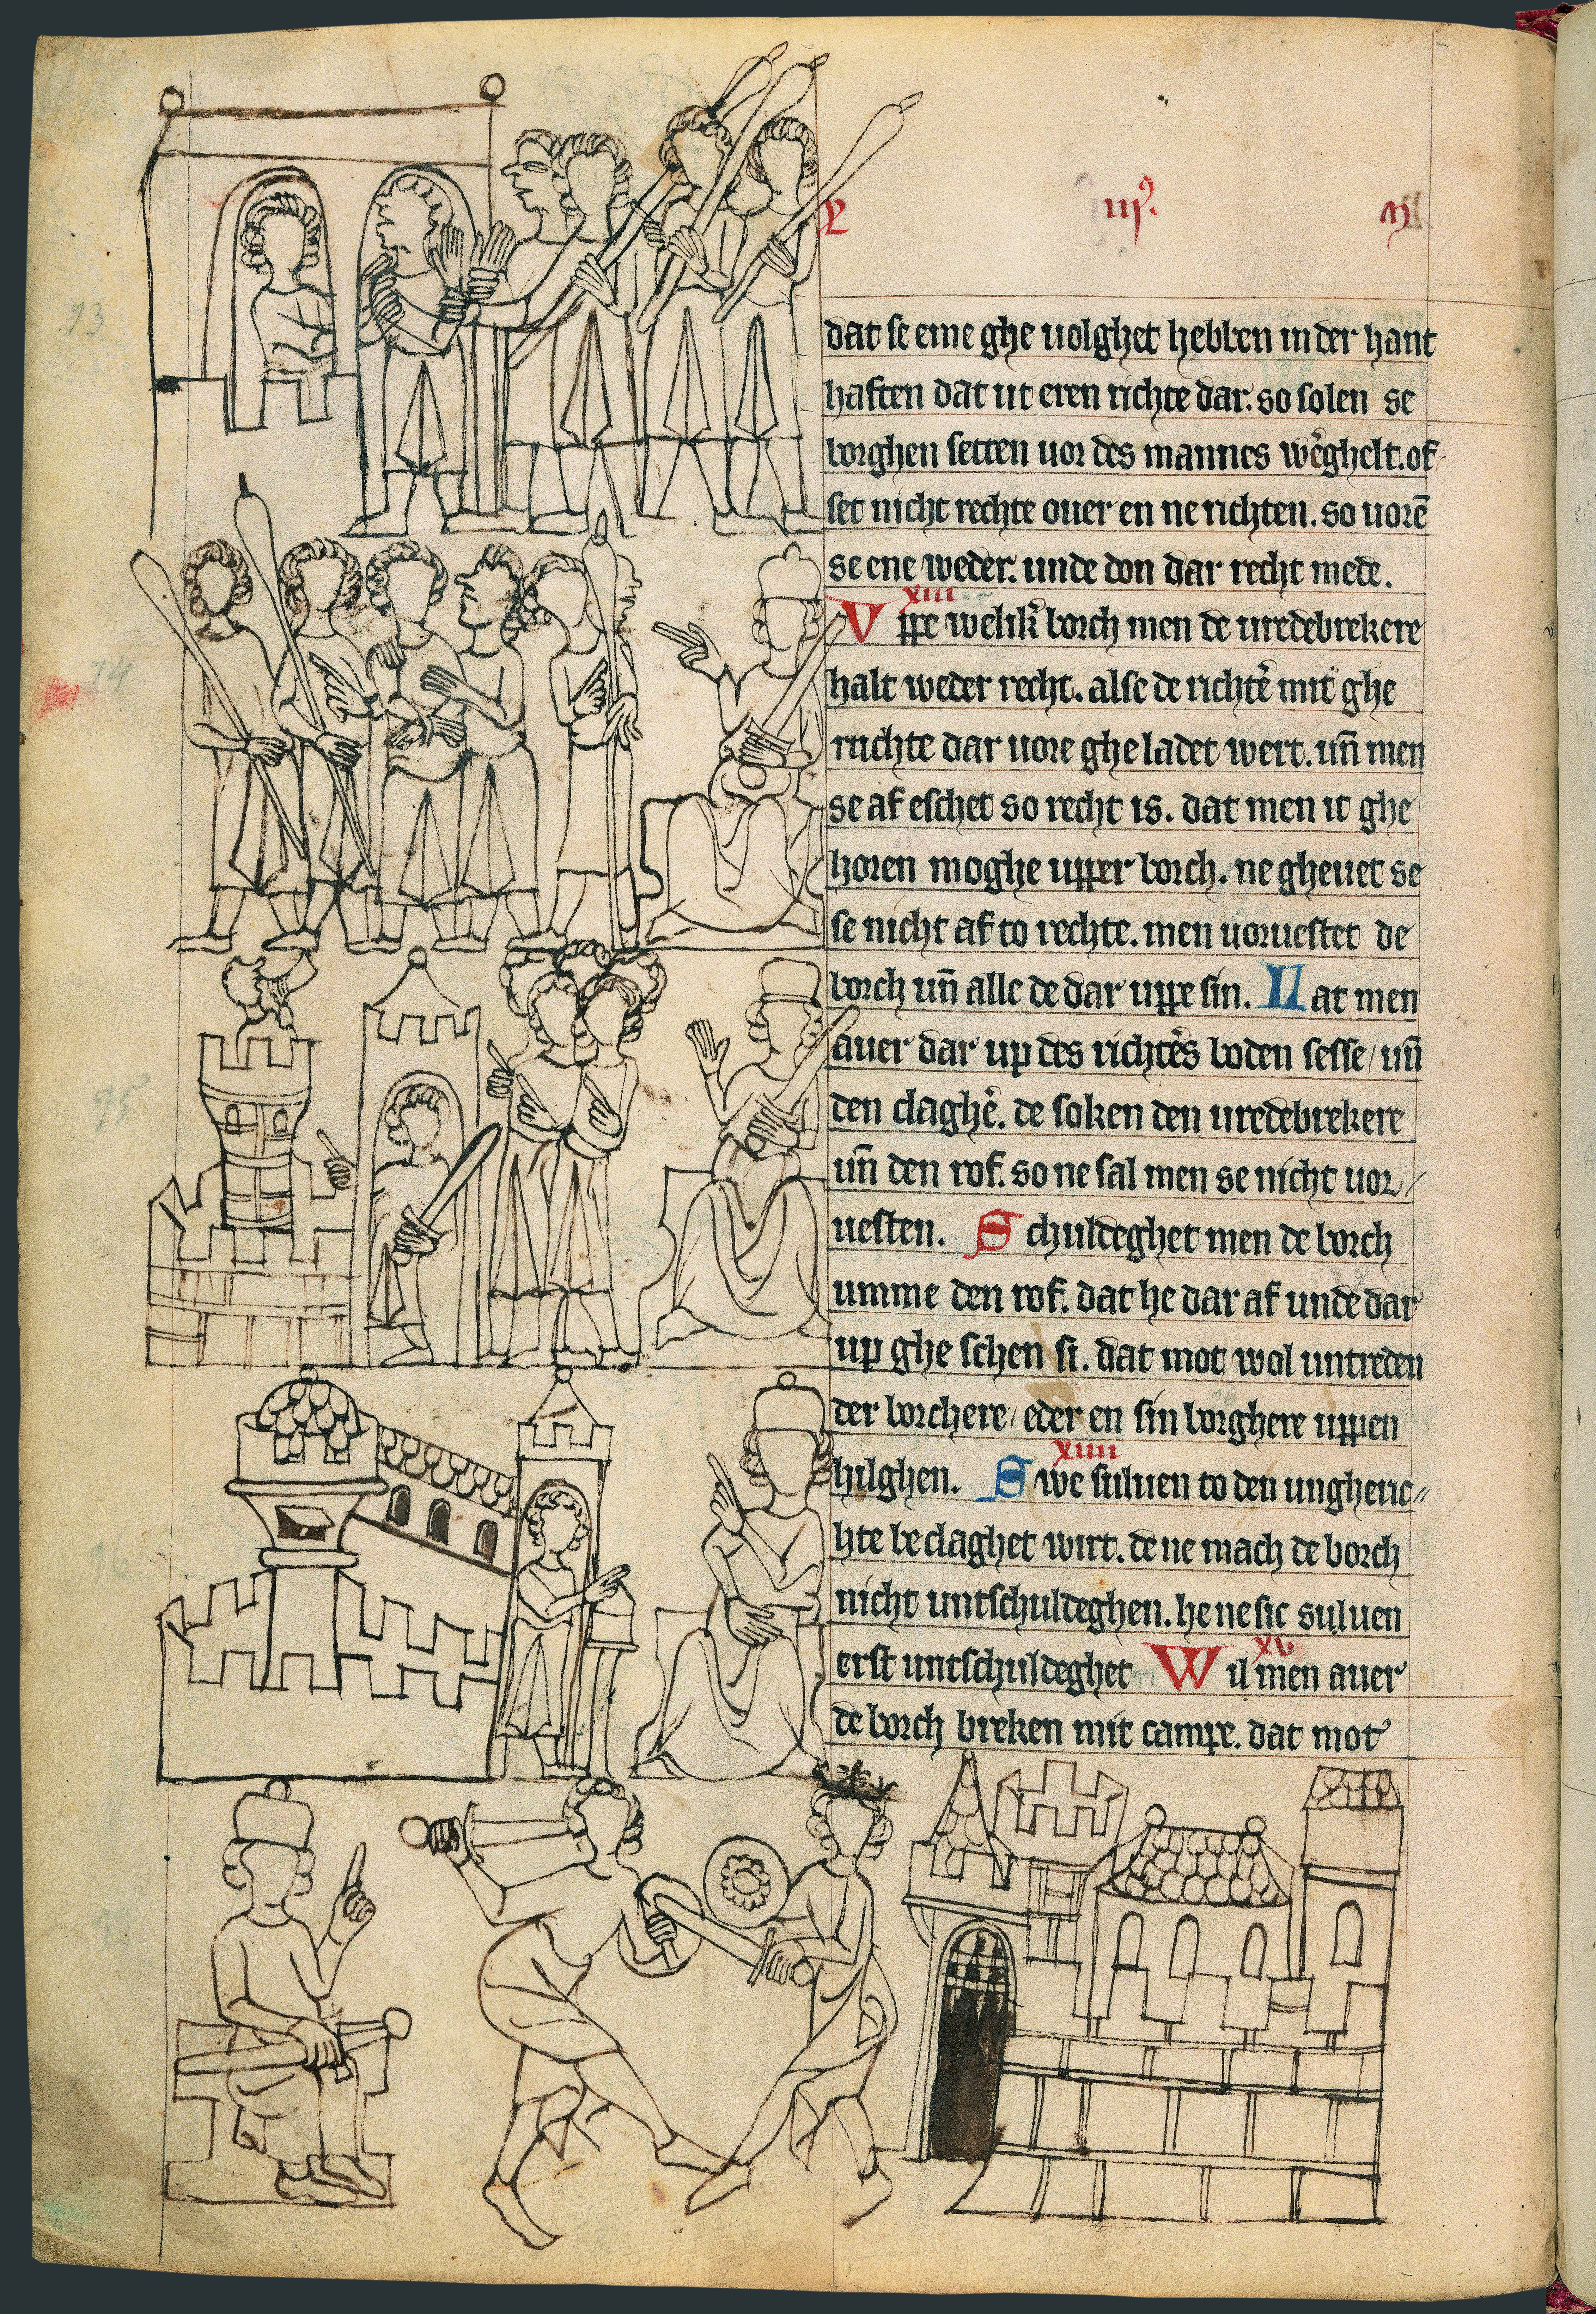 L iijꝰ. m
dat se eme ghe uolghet hebben in der hant
haften dat ut eren richte dar. so solen se
borghen setten uor des mannes wergh̄elt. of
set nicht rechte ouer en ne richten. so uorē
se ene weder. unde don dar recht mede.
xiii
Vppe welik̄ borch men de uredebrekere
halt weder recht. alse de richtē mit ghe
ruchte dar uore ghe ladet wert. un̄ men
se af eschet so recht is. dat men it ghe
horen moghe upper borch. ne gheuet se
se nicht af to rechte. men uoruestet de
borch un̄ alle de dar uppe sin. Lat men
auer dar up des richtēs boden sesse / un̄
den claghē. de soken den uredebrekere
un̄ den rof. so ne sal men se nicht uor/
uesten. Schuldeghet men de borch
umme den rof. dat he dar af unde dar
up ghe schen si. dat mot wol untreden
der borchere / eder en sin borghere uppen
xiiii
hilghen. Swe suluen to den ungheric//
hte beclaghet wirt. de ne mach de borch
nicht untschuldeghen. he ne sic suluen
xv
erst untschuldeghet Wil men auer
de borch breken mit campe. dat mot
93
94
95
96